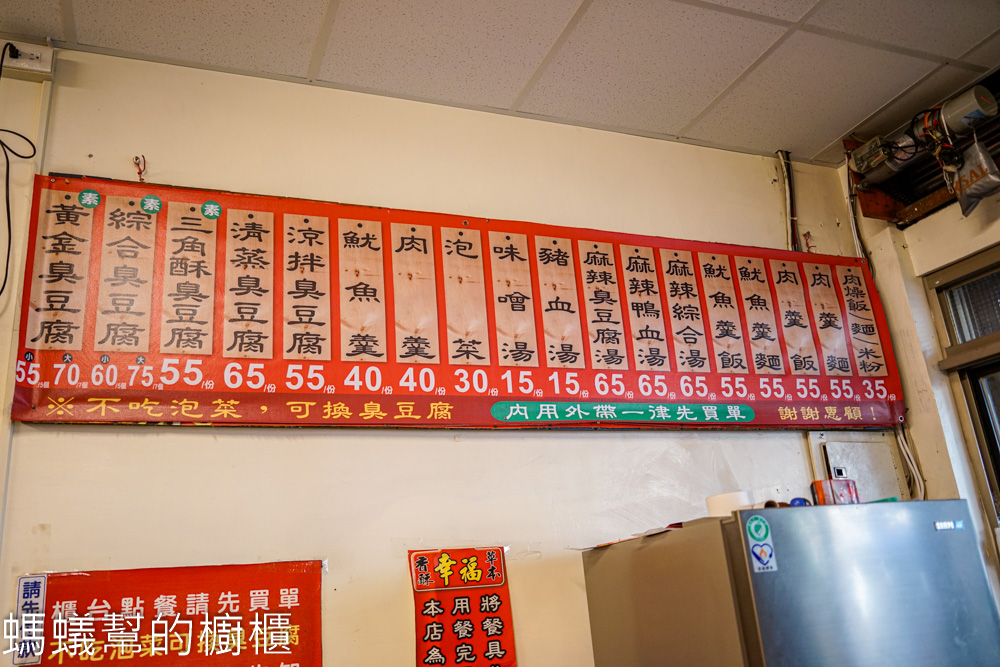 素
黃金臭豆腐
小 55 大 70
素
綜合臭豆腐
小 60 大 75
素
三角酥臭豆腐
55/份
清蒸臭豆腐
65/份
涼拌臭豆腐
55/份
魷魚羹
40/份
肉羹
40/份
泡菜
30/份
味噌湯
15/份
豬血湯
15/份
麻辣臭豆腐湯
65/份
麻辣鴨血湯
65/份
麻辣綜合湯
65/份
魷魚羹飯
55/份
魷魚羹麵
55/份
肉羹飯
55/份
肉羹麵
55/份
肉燥飯(麵)米粉
35/份
※不吃泡菜，可換臭豆腐
內用外帶一律先買單
謝謝惠顧！
請先
櫃台點餐請先買單
不吃泡菜可換臭豆腐
香酥 幸福 草本
將餐具
用餐完
本店為
螞蟻幫的櫥櫃